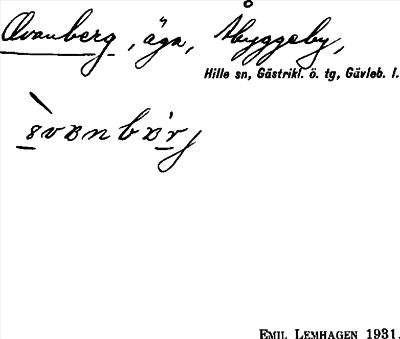 Ovanberg, äga, Åbyggeby,
Hille sn, Gästrikl. ö. tg, Gävleb. l.
Emil Lemhagen 1931.